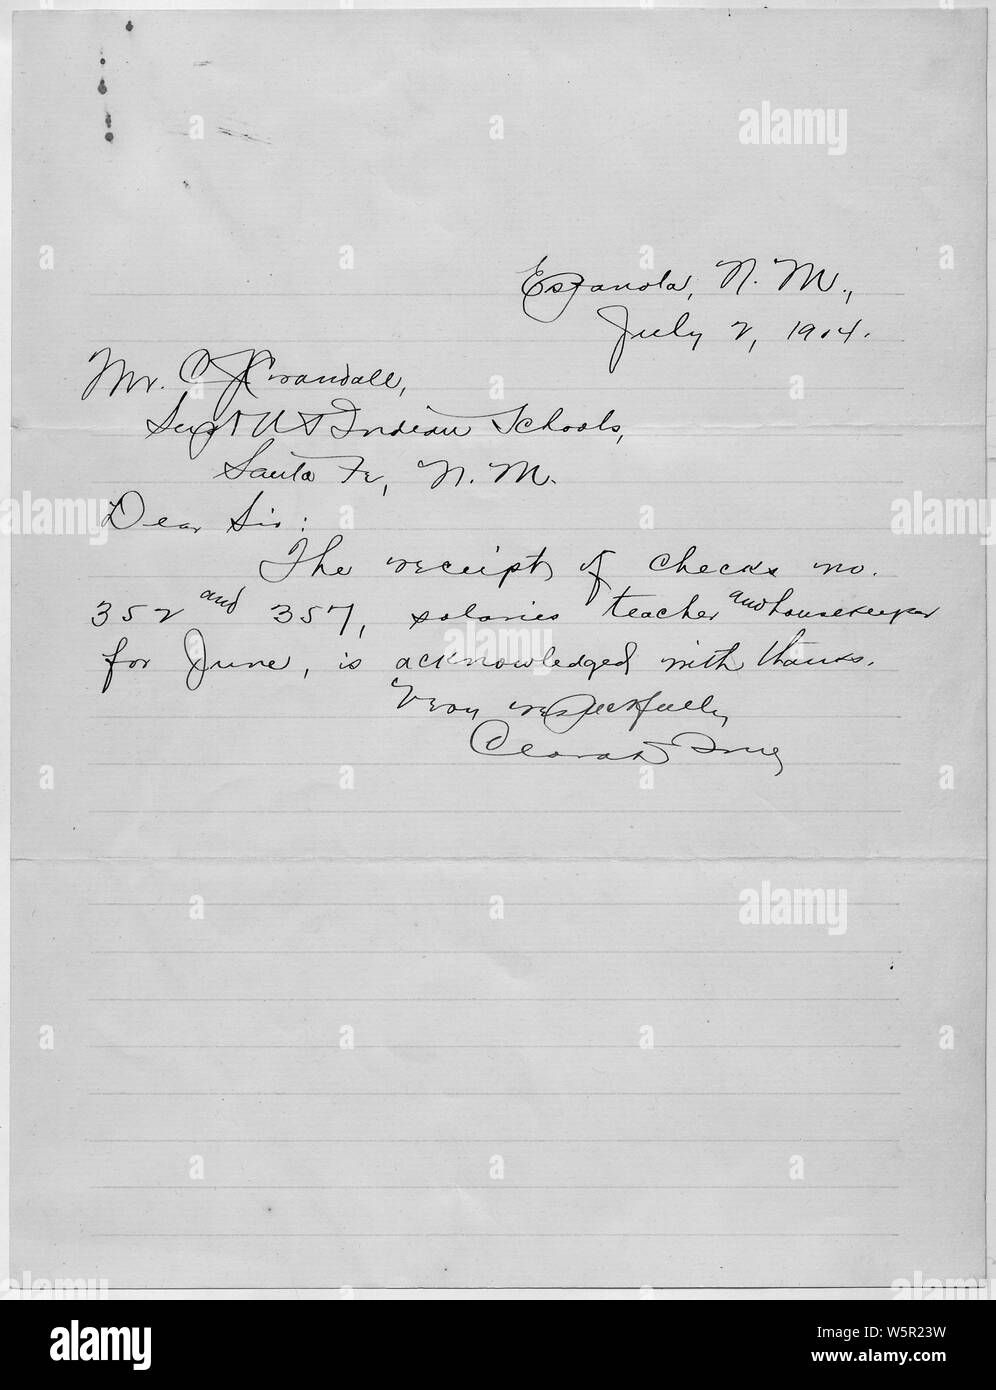 Espanola, N. M.,
July 2, 1904.
Mr. C J Crandall,
Supt U S Indian Schools,
Santa Fe, N. M.
Dear Sir:
The receipt of checks no.
352 and 357, salaries teacher and housekeeper
for June, is acknowledged with thanks.
Very respectfully
Clara D True
alamy
Image ID: W5R23W
www.alamy.com